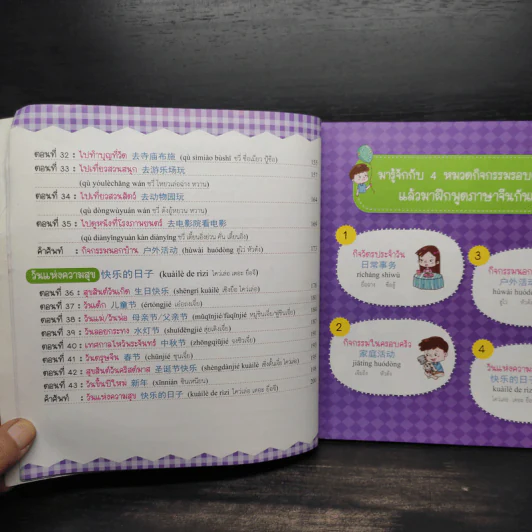 ตอนที่ 32 : ไปทำบุญที่วัด 去寺庙布施 (qù sìmiào bùshī ชวี่ ซื่อเมี่ยว ปู้ซือ)
ตอนที่ 33 : ไปเที่ยวสวนสนุก 去游乐场玩
(qù yóulèchǎng wán ชวี่ โหยวเล่อฉ่าง หวาน)
ตอนที่ 34 : ไปเที่ยวสวนสัตว์ 去动物园玩 164
(qù dòngwùyuán wán ชวี่ ต้งอู้หยวน หวาน)
ตอนที่ 35 : ไปดูหนังที่โรงภาพยนตร์ 去电影院看电影
(qù diànyǐngyuàn kàn diànyǐng ชวี่ เตี้ยนอิ่งย่วน คั่น เตี้ยนอิ่ง)
คำศัพท์ : กิจกรรมนอกบ้าน 户外活动 (hùwài huódòng ฮู่ไว่ หัวต้ง) 175
วันแห่งความสุข 快乐的日子 (kuàilè de rìzi ไคว่เล่อ เตอะ ยื่อจึ)
ตอนที่ 36 : สุขสันต์วันเกิด 生日快乐 (shēngrì kuàilè เซิงยื่อ ไคว่เล่อ)
ตอนที่ 37 : วันเด็ก 儿童节 (értóngjié เอ๋อถงเจี๋ย)
ตอนที่ 38 : วันแม่/วันพ่อ 母亲节/父亲节 (mǔqīnjié/fùqīnjié หมู่ชินเจี๋ย/ฟู่ชินเจี๋ย)
ตอนที่ 39 : วันลอยกระทง 水灯节 (shuǐdēngjié สุ่ยเติงเจี๋ย)
ตอนที่ 40 : เทศกาลไหว้พระจันทร์ 中秋节 (zhōngqiūjié จงชิวเจี๋ย)
ตอนที่ 41 : วันตรุษจีน 春节 (chūnjié ชุนเจี๋ย)
ตอนที่ 42 : สุขสันต์วันคริสต์มาส 圣诞节快乐 (shèngdànjié kuàilè เซิ่งตั้นเจี๋ย ไคว่เล่อ)
ตอนที่ 43 : วันขึ้นปีใหม่ 新年 (xīnnián ซินเหนียน)
คำศัพท์ : วันแห่งความสุข 快乐的日子 (kuàilè de rìzi ไคว่เล่อ เตอะ ยื่อจึ)
มารู้จักกับ 4 หมวดกิจกรรมรอบ
แล้วมาฝึกพูดภาษาจีนกัน
1
กิจวัตรประจำวัน
日常事务
rìcháng shìwù
2
กิจกรรมในครอบครัว
家庭活动
jiātíng huódòng
เจียถิง หัวต้ง
3
กิจกรรมนอก
户外活
hùwài huó
ฮู่ไว่ หัว
4
วันแห่งความ
快乐的日
kuàilè de r
ไคว่เล่อ เตอะ